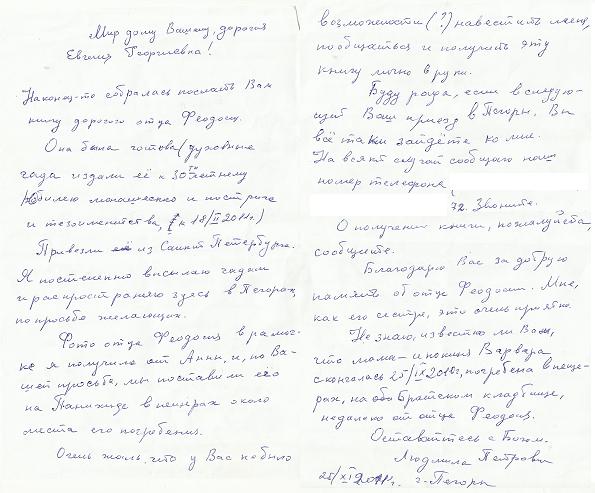 Мир дому Вашему, дорогая
Евгения Георгиевна!
Наконец-то собралась послать Вам
книгу дорогого отца Феодосия.
Она была готова (духовные
чада издали её к 30ти летнему
Юбилею монашества и пострига
и тезоименитства, к 18/II 2011г.)
Привезли её из Санкт Петербурга.
Я постепенно высылаю чадам
и распространяю здесь в Печорах,
по просьбе желающих.
Фото отца Феодосия в рамоч-
ке я получила от Анны, и, по Ва-
шей просьбе, мы поставили его
на Панихиде в пещерах около
места его погребения.
Очень жаль, что у Вас не было
возможности (?) навестить меня,
пообщаться и получить эту
книгу лично в руки.
Буду рада, если в следую-
щий Ваш приезд в Печоры, Вы
всё таки зайдёте ко мне.
На всякий случай сообщаю наш
номер телефона
72. Звоните.
О получении книги, пожалуйста,
сообщите.
Благодарю Вас за добрую
память об отце Феодосии. Мне,
как его сестре, это очень приятно.
Не знаю, известно ли Вам,
что мама - инокиня Варвара
скончалась 25/IX 2010г, погребена в пеще-
рах, на Братском кладбище,
недалеко от отца Феодосия.
Оставайтесь с Богом.
Людмила Петровна
25/XI 2011г. г. Печоры